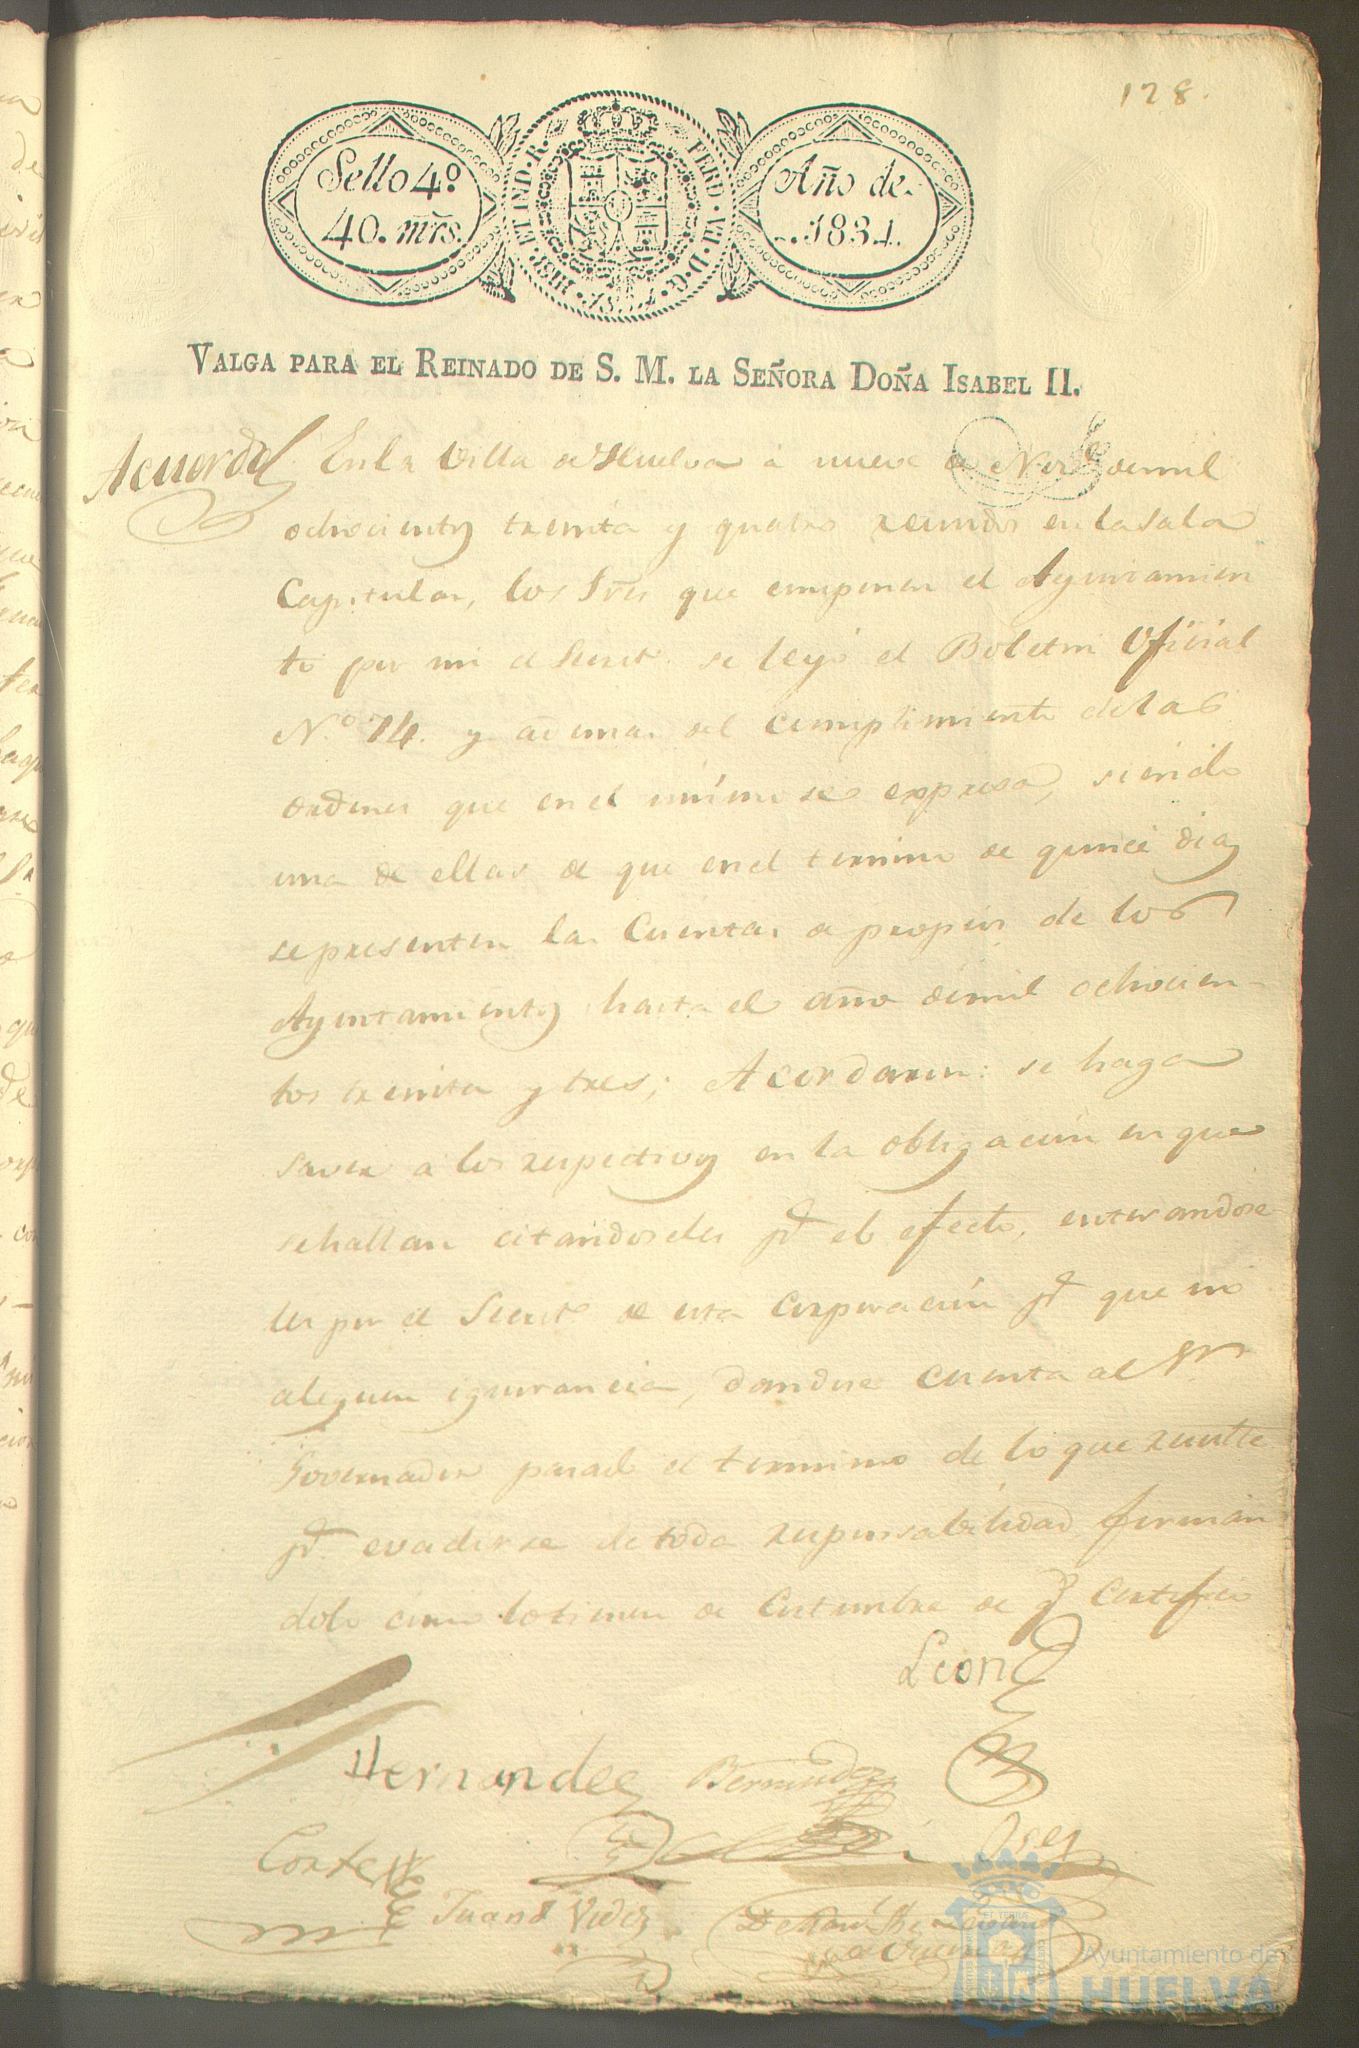 128.
Sello 4º
40. mrs.
HISP. ET IND. R. FERD. VII. D. G.
Año de
1834.
VALGA PARA EL REINADO DE S. M. LA SEÑORA DOÑA ISABEL II.
Acuerdo
En la Villa de Huelva á nueve de Nov.e de mil
ochocientos treinta y quatro reunidos en la sala
Capitular, los Sres que componen el Ayuntamien
to por mi el Secret.º se leyó el Boletin Oficial
N.º 74. y ademas del cumplimiento de las
ordenes que en el mismo se expresa, siendo
una de ellas de que en el termino de quince dias
se presenten las Cuentas de propios de los
Ayuntamientos hasta el año de mil ochocien-
tos treinta y tres; Acordaron: se haga
saver a los respectivos en la obligacion en que
se hallan citandoseles p.a el efecto, enterandose
les por el Secret.º de esta Corporacion p.a que no
aleguen ignorancia, dandose cuenta al Sr.
Governador pasado el termino de lo que resulte
p.a evadirse de toda responsabilidad firman
dolo como lo tienen de costumbre de q.e certifico
Leon
Hernandez Bermudez
Cortes
Juan Videz
Ayuntamiento de
HUELVA